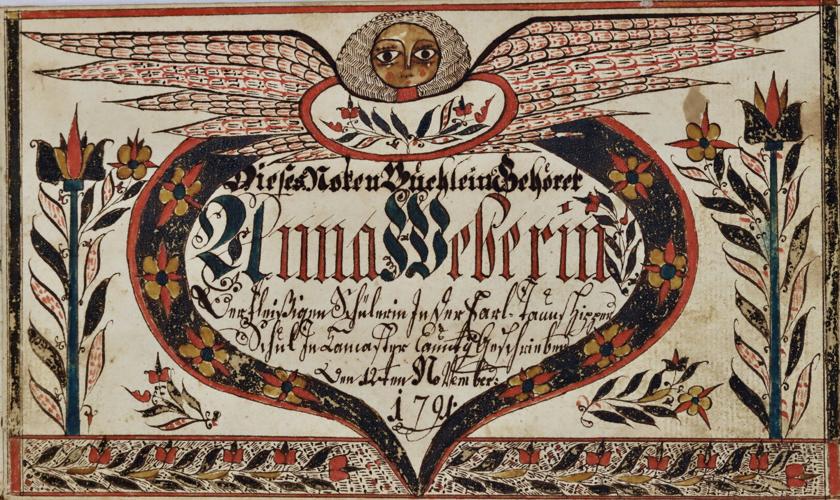 Dieses Noten Büchlein Gehöret
Anna Weberin
Der fleißigen Schülerin In der Earl-Taunschipper
Schul In Lancaster Caunty Geschrieben
Den 12ten November
1791